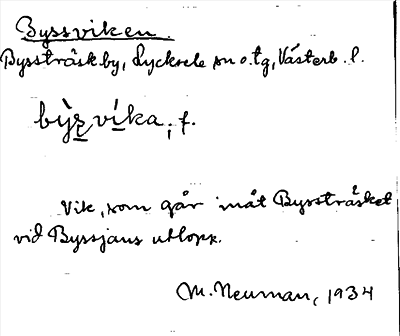 Byssviken.
Bysträsk by, Lycksele sn o. tg, Västerb. l.
by̆s̱ vi̱ka, f.
Vik, som går inåt Bysträsket
vid Byssjans utlopp.
M. Neuman, 1934